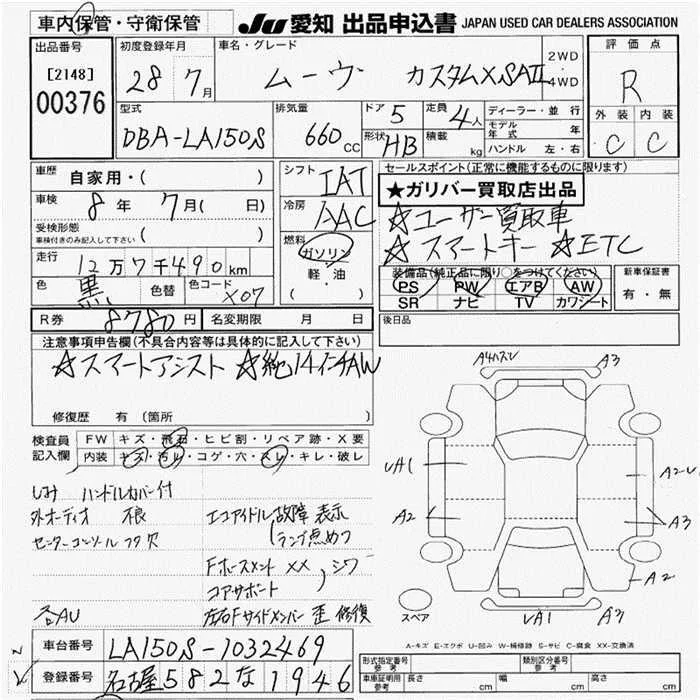 車内保管・守衛保管
JU 愛知 出品申込書 JAPAN USED CAR DEALERS ASSOCIATION
出品番号
[2148]
00376
初度登録年月
28 7月
車名・グレード
ムーヴ カスタムX SAII
2WD
・
4WD
評価点
R
外装 内装
C C
型式
DBA-LA150S
排気量
660 CC
ドア 5
形状 HB
定員 4人
積載 kg
ディーラー・並行
モデル年式 年
ハンドル 左・右
車歴
自家用・( )
車検 8年 7月( 日)
受検形態
車検付きのみ記入して下さい ( )
走行 12万7千490km
色 黒 色替 色コード X07
シフト IAT
冷房 AAC
燃料
ガソリン
軽・油
・( )
セールスポイント(正常に機能するものに限ります)
★ガリバー買取店出品
☆ユーザー買取車
☆スマートキー ☆ETC
装備品(純正品に限り○をつけてください)
PS PW エアB AW
SR ナビ TV カワシート
新車保証書
有・無
R券 8780円 名変期限 月 日
後日品
注意事項申告欄(不具合内容等は具体的に記入して下さい)
☆スマートアシスト ☆純14インチAW
修復歴 有(箇所
検査員記入欄
FW キズ・飛石・ヒビ割・リペア跡・X要
内装 キズ・汚レ・コゲ・穴・スレ・キレ・破レ
しみ ハンドルカバー付
外オーディオ 不良 エコアイドル故障表示
ランプ点めつ
センターコンソールフタ欠
Fホースメント XX
コアサポート
シワ
各AU 左右Fサイドメンバー 歪 修復
A4ハスレ A3
UA1
A2
A2-U
A3
A2
UA1 A3
スペア
A-キズ E-エクボ U-凹み W-補修跡 S-サビ C-腐食 XX-交換済
車台番号 LA150S-1032469
登録番号 名古屋582な1946
形式指定番号 参考
類別区分番号 参考
車庫証明用 参考 長さ cm 幅 cm 高さ cm